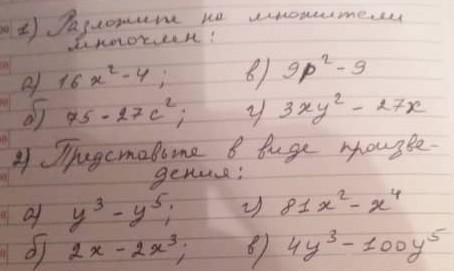 1) Разложите на множители
многочлен:
а) 16x² - 4; в) 9p² - 9
б) 75 - 27c²; г) 3xy² - 27x
2) Представьте в виде произве-
дения:
а) y³ - y⁵; г) 81x² - x⁴
б) 2x - 2x³; в) 4y³ - 100y⁵